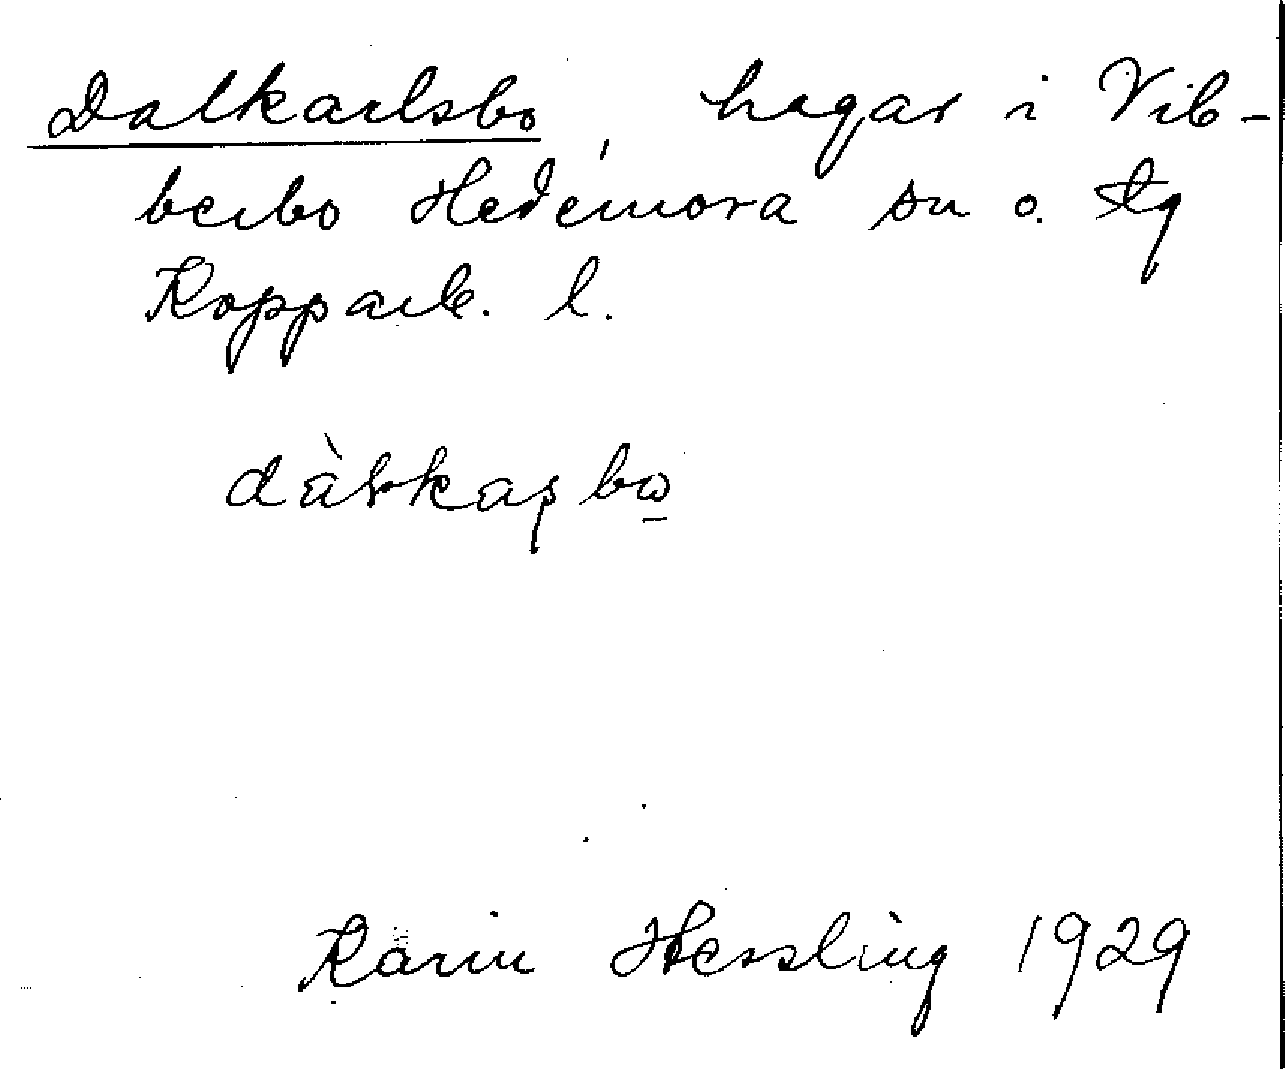 Dalkarlsbo, hagar i Vib-
berbo Hedemora sn o. tg
Kopparb. l.
Karin Hessling 1929